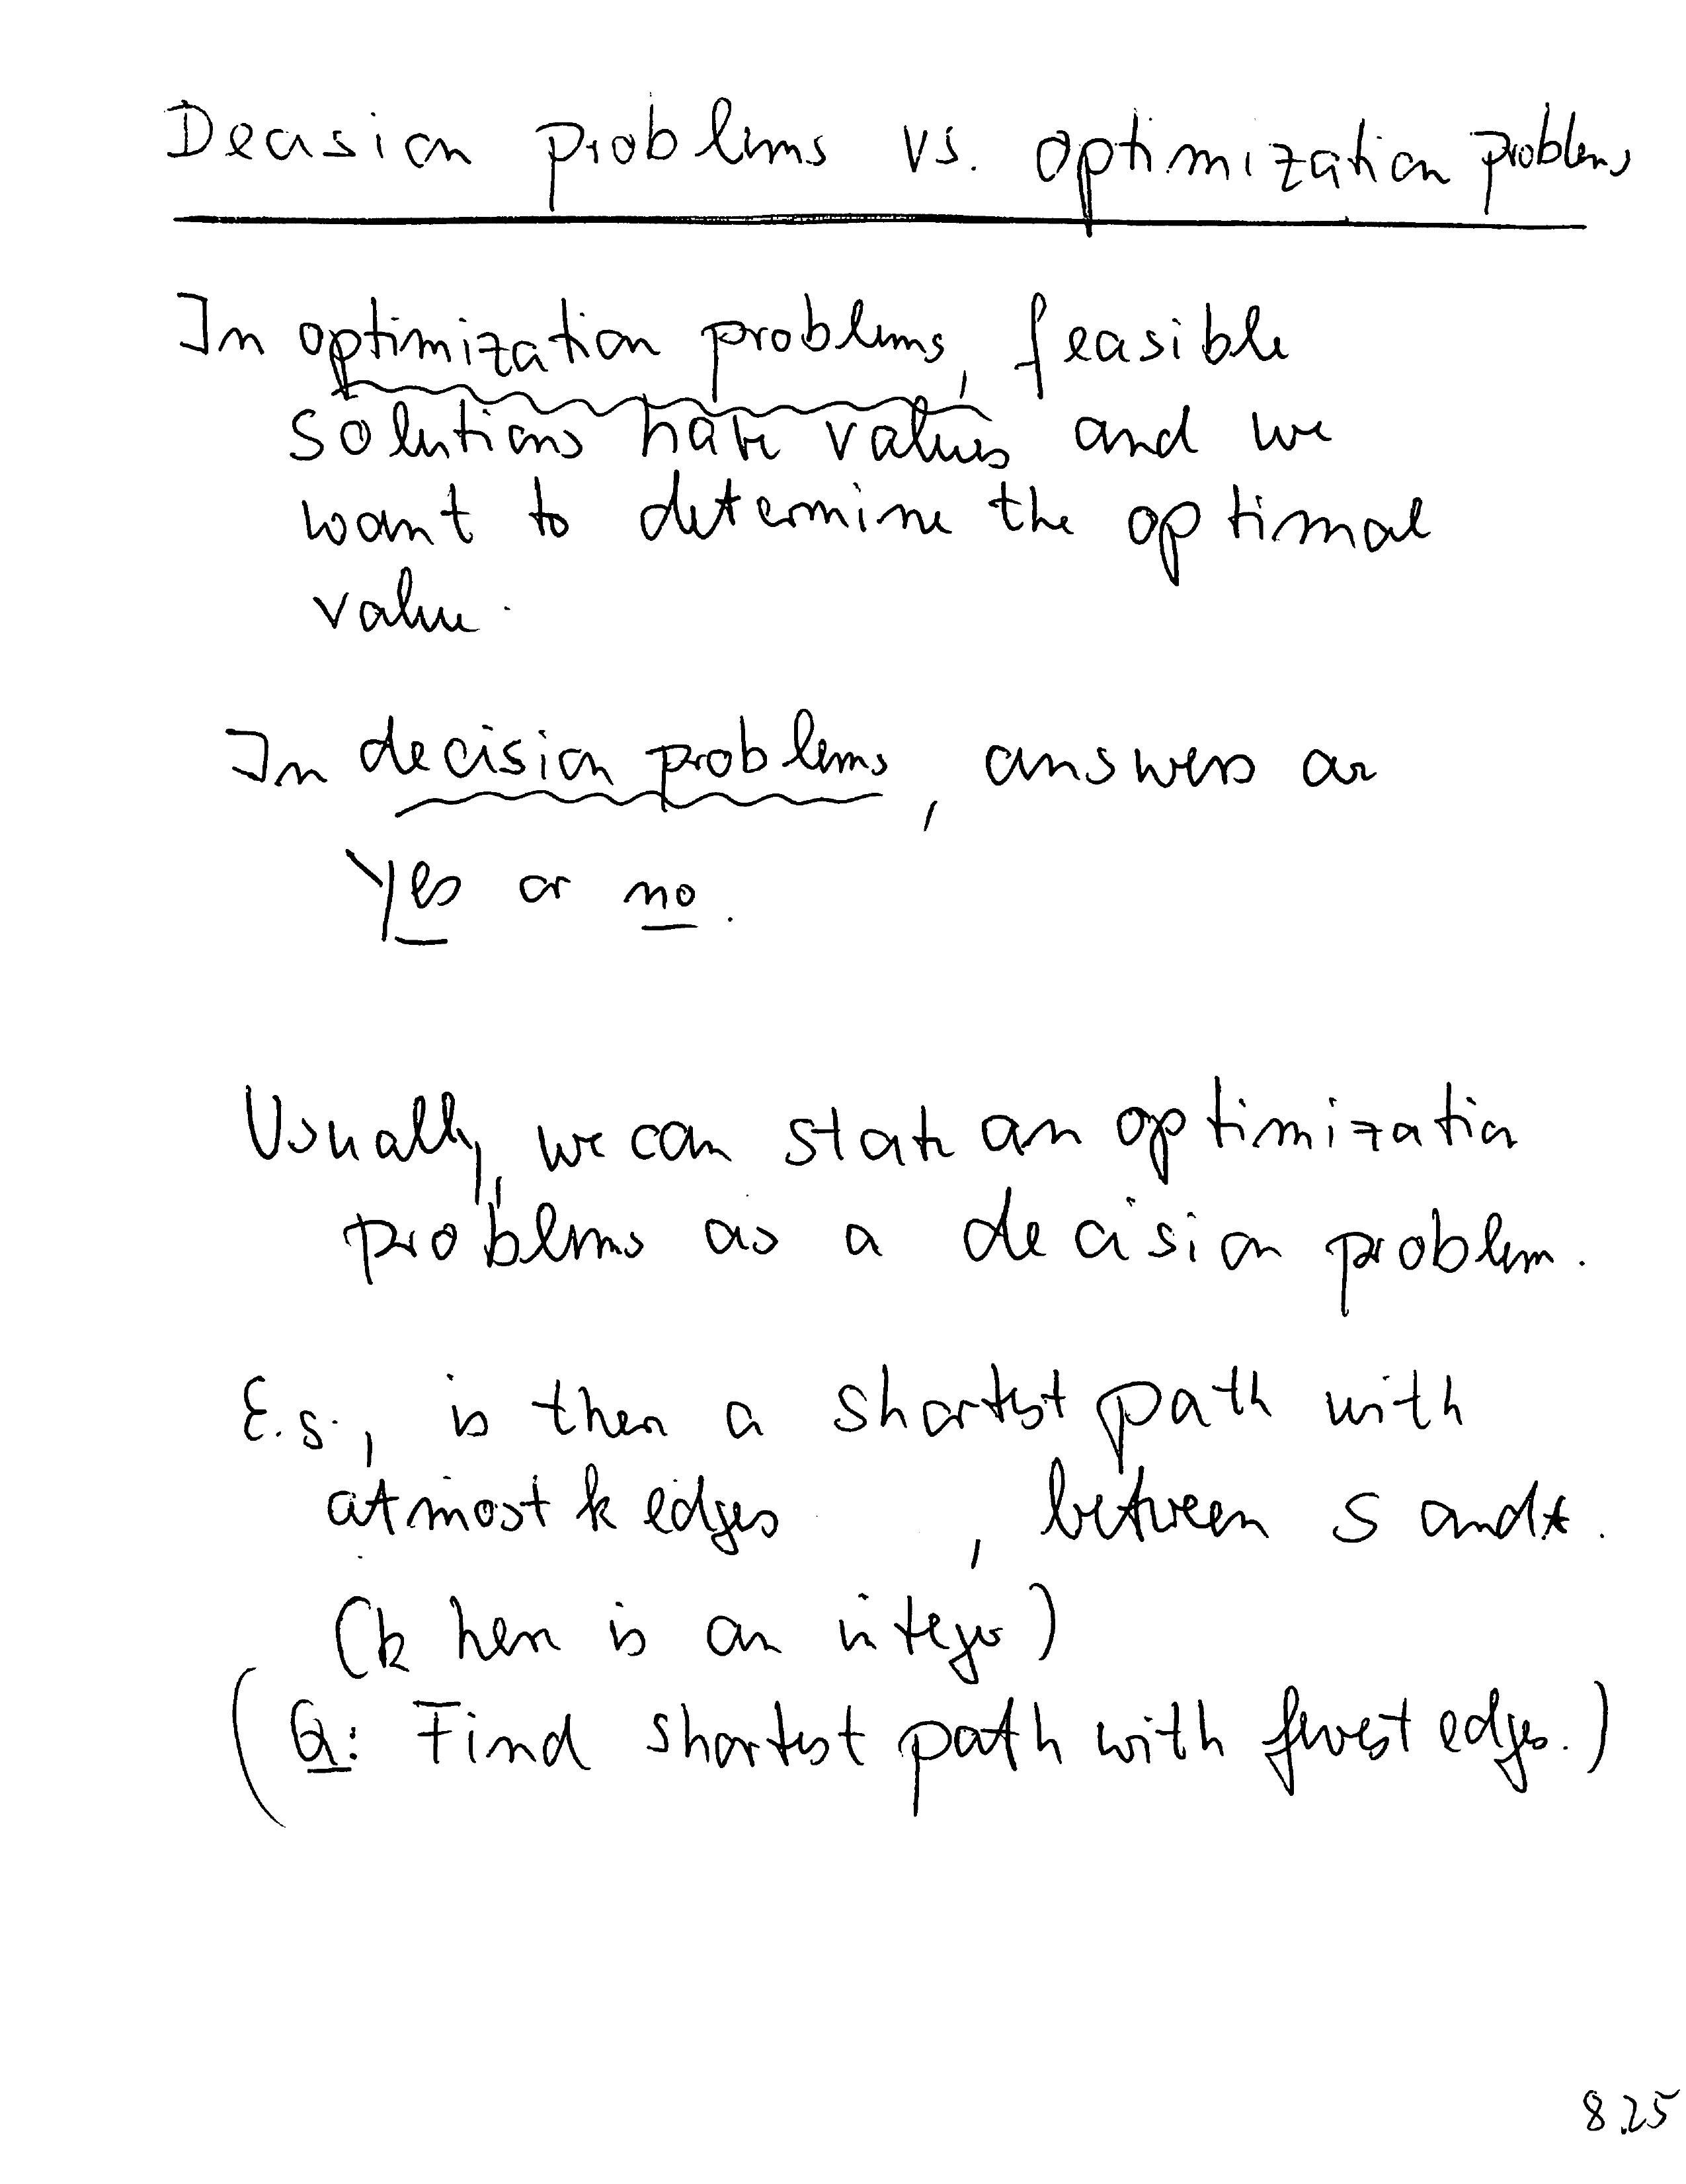 Decision problems vs. optimization problems
In optimization problems, feasible
solutions have values and we
want to determine the optimal
value.
In decision problems, answers are
Yes or no.
Usually, we can state an optimization
problems as a decision problem.
E.g., is there a shortest path with
at most k edges, between s and t.
(k here is an integer)
(Q: Find shortest path with fewest edges.)
8.25